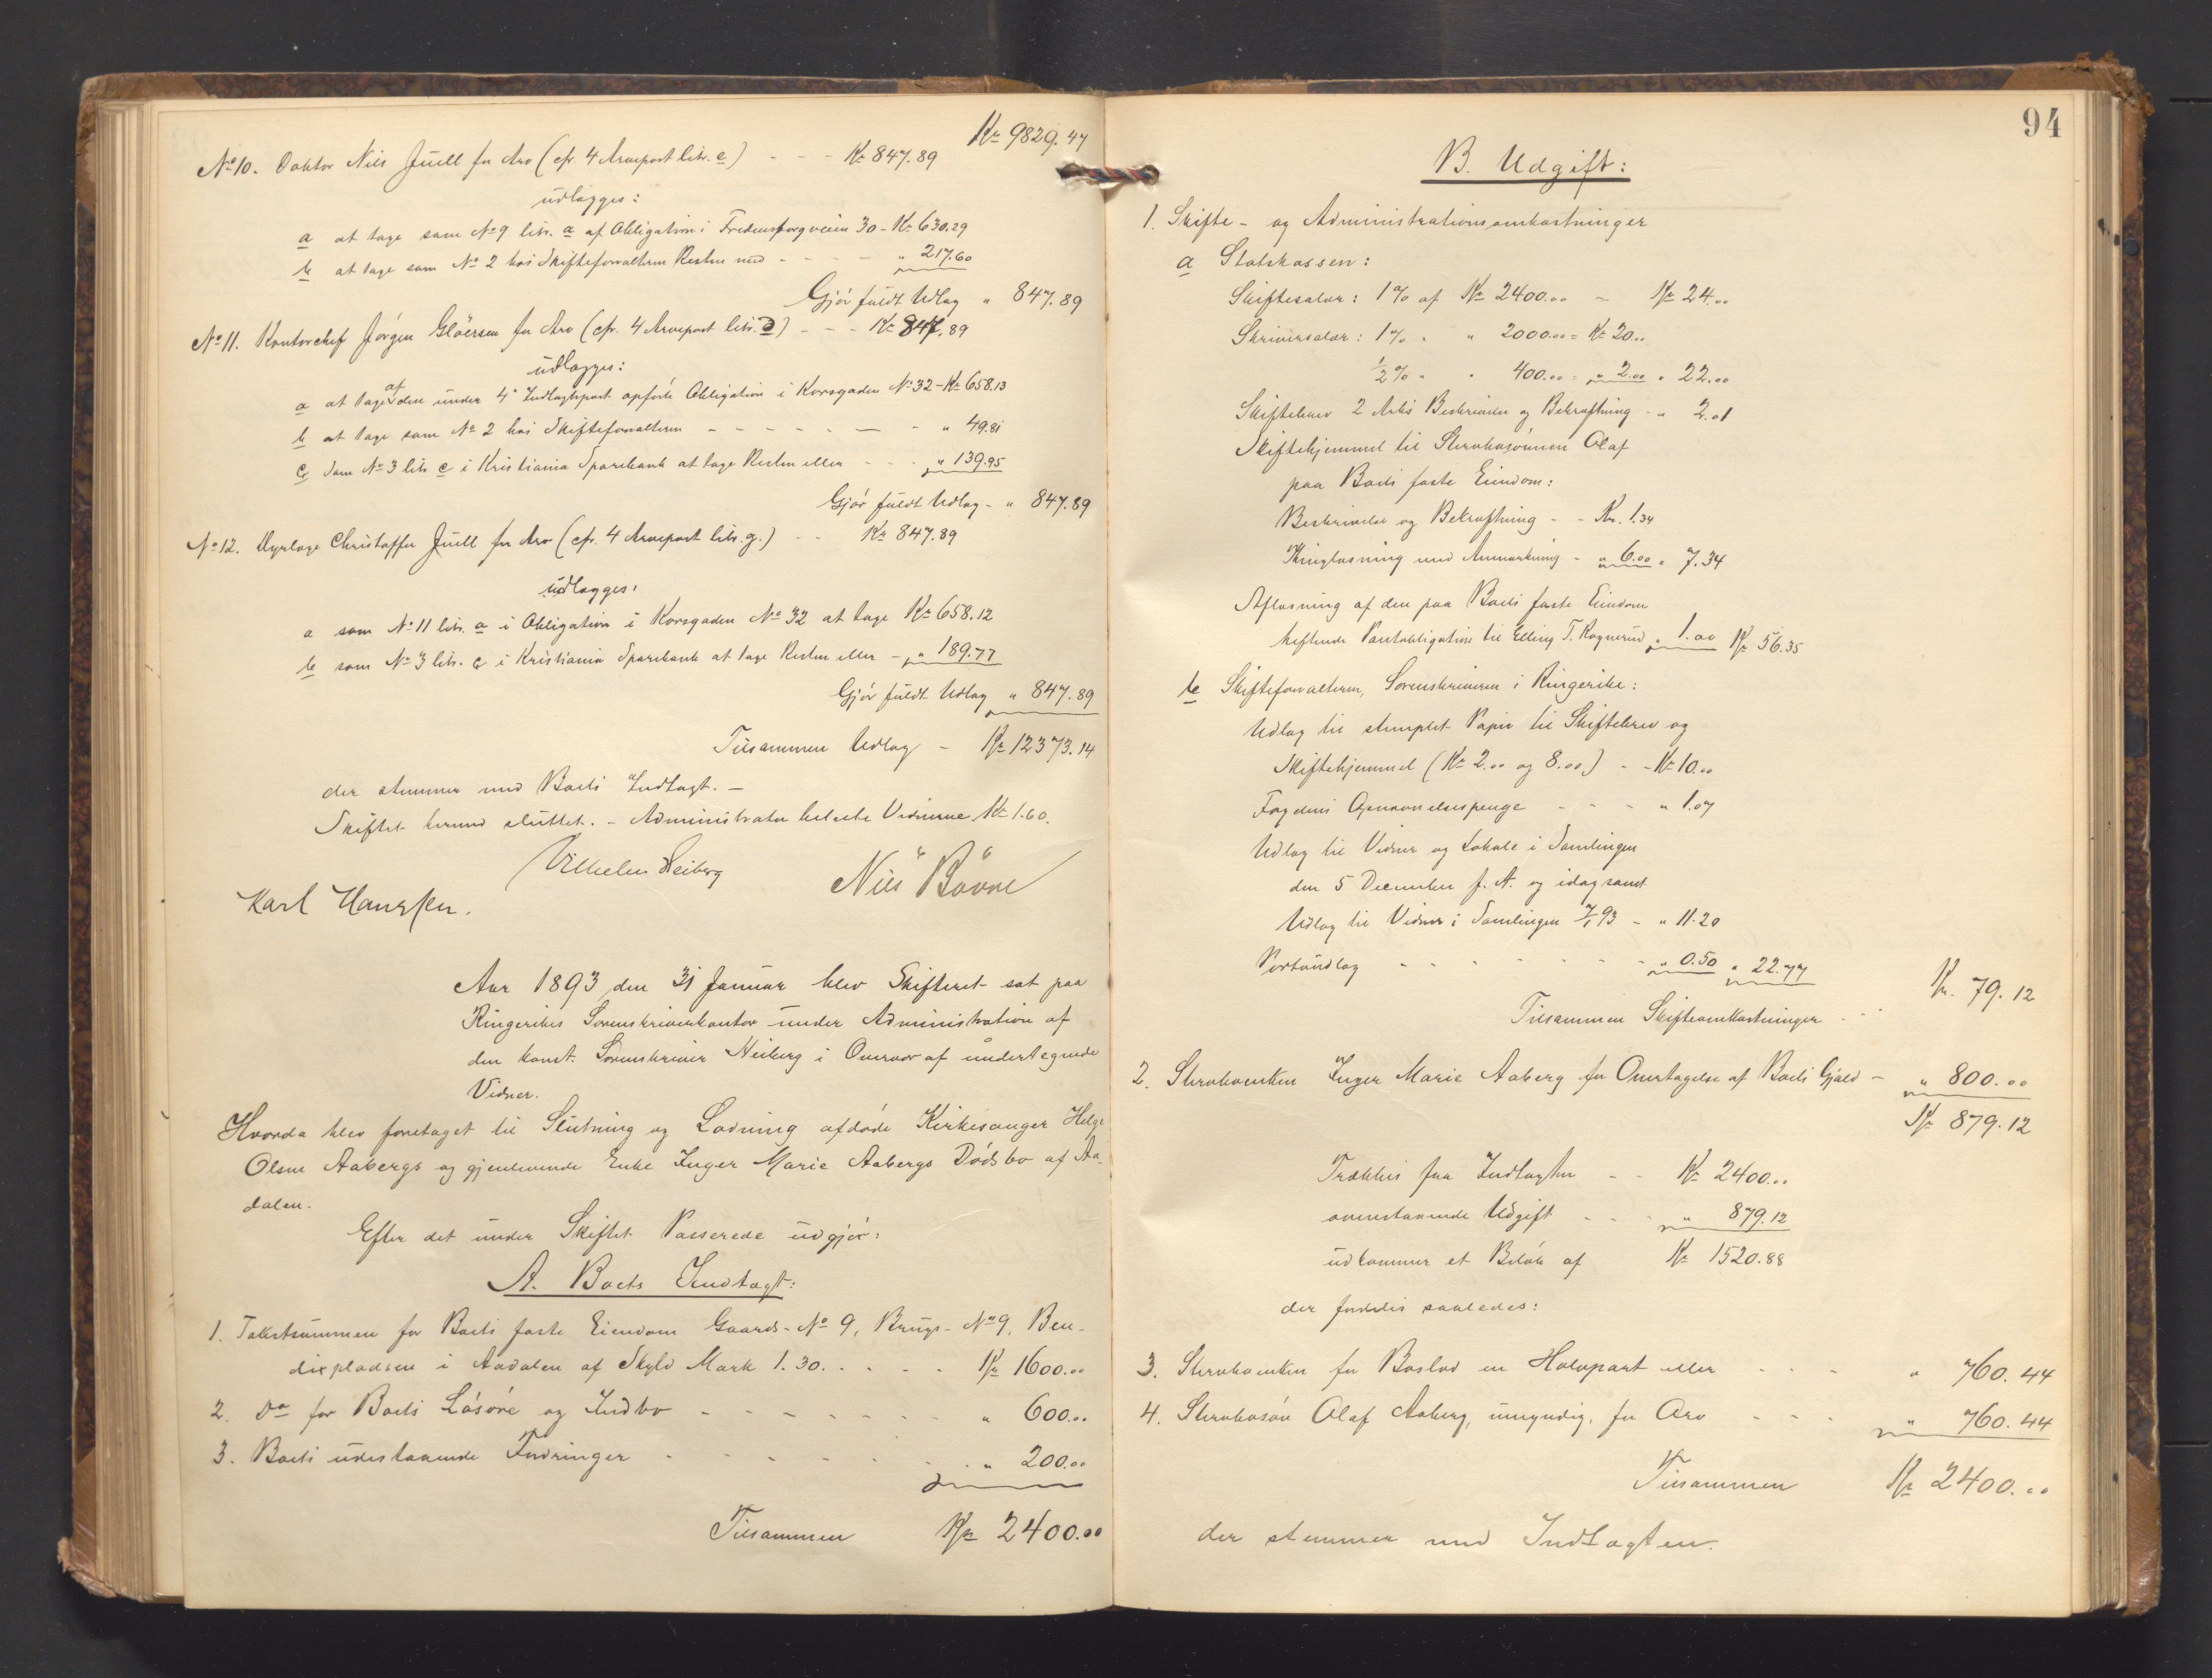 Kr 9829.47
No 10. Doktor Niels Juell for Arv (cfr. 4 Arvepost litr. e) - - - Kr 847.89
udlægges:
a at tage som No 9 litr. a af Obligation i Fredensborgveien 30 - Kr 630.29
b at tage som No 2 hos Skifteforvalteren Resten med - - - - " 217.60
Gjør fuldt Udlæg " 847.89
No 11. Kontorchef Jørgen Gløersen for Arv (cfr. 4 Arvepost litr. d) - - - Kr 847.89
udlægges:
a at tage af den under 4de Indtægtspost opførte Obligation i Korsgaden No 32 - Kr 658.13
b at tage som No 2 hos Skifteforvalteren - - - - - - - " 49.81
c Som No 3 litr. c i Kristiania Sparebank at tage Resten eller - - - " 139.95
Gjør fuldt Udlæg - " 847.89
No 12. Christoffer Juell for Arv (cfr. 4 Arvepost litr. g.) - - Kr 847.89
udlægges:
a som No 11 litr. a i Obligation i Korsgaden No 32 at tage Kr 658.12
b som No 3 litr. c i Kristiania Sparebank at tage Resten eller - " 189.77
Gjør fuldt Udlæg " 847.89
Tilsammen Udlæg - Kr 12373.14
der stemmer med Boets Indtægt. -
Skiftet hermed sluttet. - Administrator betalte Vidnerne Kr 1.60.
Vilhelm Heiberg
Karl Hanssen.
Nils Bøvre
Aar 1893 den 31 Januar blev Skifteret sat paa
Ringerikes Sorenskriverkontor under Administration af
den konst. Sorenskriver Heiberg i Overvær af undertegnede
Vidner.
Hvorda blev foretaget til Slutning og Lodning afdøde Kirkesanger Helge
Olsen Aabergs og gjenlevende Enke Inger Marie Aabergs Dødsbo af Aa-
dalen.
Efter det under Skiftet Passerede udgjør:
A. Boets Indtægt:
1. Takstsummen for Boets faste Eiendom Gaards-No 9, Brugs-No 9, Ben-
dixpladsen i Aadalen af Skyld Mark 1.30. - - - - Kr 1600.00
2. Do for Boets Løsøre og Indbo - - - - - - - " 600.00
3. Boets udestaaende Fordringer - - - - - - - " 200.00
Tilsammen Kr 2400.00
94
B. Udgift:
1. Skifte- og Administrationsomkostninger
a Statskassen:
Skiftesalær: 1% af Kr 2400.00 = Kr 24.00
Skriversalær: 1% " " 2000.00 = Kr 20.00
1/2% " " 400.00 = " 2.00 " 22.00
Skiftebrev 2 Arks Beskrivelse og Bekræftning - " 2.01
Skiftehjemmel til Stervbosønnen Olaf
paa Boets faste Eiendom:
Beskrivelse og Bekræftning - - Kr. 1.34
Thinglæsning med Anmærkning - " 6.00 " 7.34
Aflæsning af den paa Boets faste Eiendom
heftende Pantobligation til Elling T. Rognerud " 1.00 Kr 56.35
b Skifteforvalteren, Sorenskriveren i Ringerike:
Udlæg til stemplet Papir til Skiftebrev og
Skiftehjemmel (Kr 2.00 og 8.00) - - Kr 10.00
Fogdens Opnævnelsespenge - - - " 1.07
Udlæg til Vidner og Lokale i Samlingen
den 5 December f. A. og idag samt
Udlæg til Vidner i Samlingen 7/1 93 - " 11.20
Portoudlæg - - - - - - - " 0.50 " 22.77
Kr. 79.12
Tilsammen Skifteomkostninger - - -
2. Stervboenken Inger Marie Aaberg for Overtagelse af Boets Gjæld - " 800.00
Kr 879.12
Trækkes fra Indtægten - - Kr 2400.00
ovenstaaende Udgift - - - " 879.12
udkommer et Beløb af Kr 1520.88
der fordeles saaledes:
3. Stervboenken for Boslod en Halvpart eller - - - " 760.44
4. Stervbosøn Olaf Aaberg, umyndig, for Arv - - - " 760.44
Tilsammen Kr 2400.00
der stemmer med Indtægten.